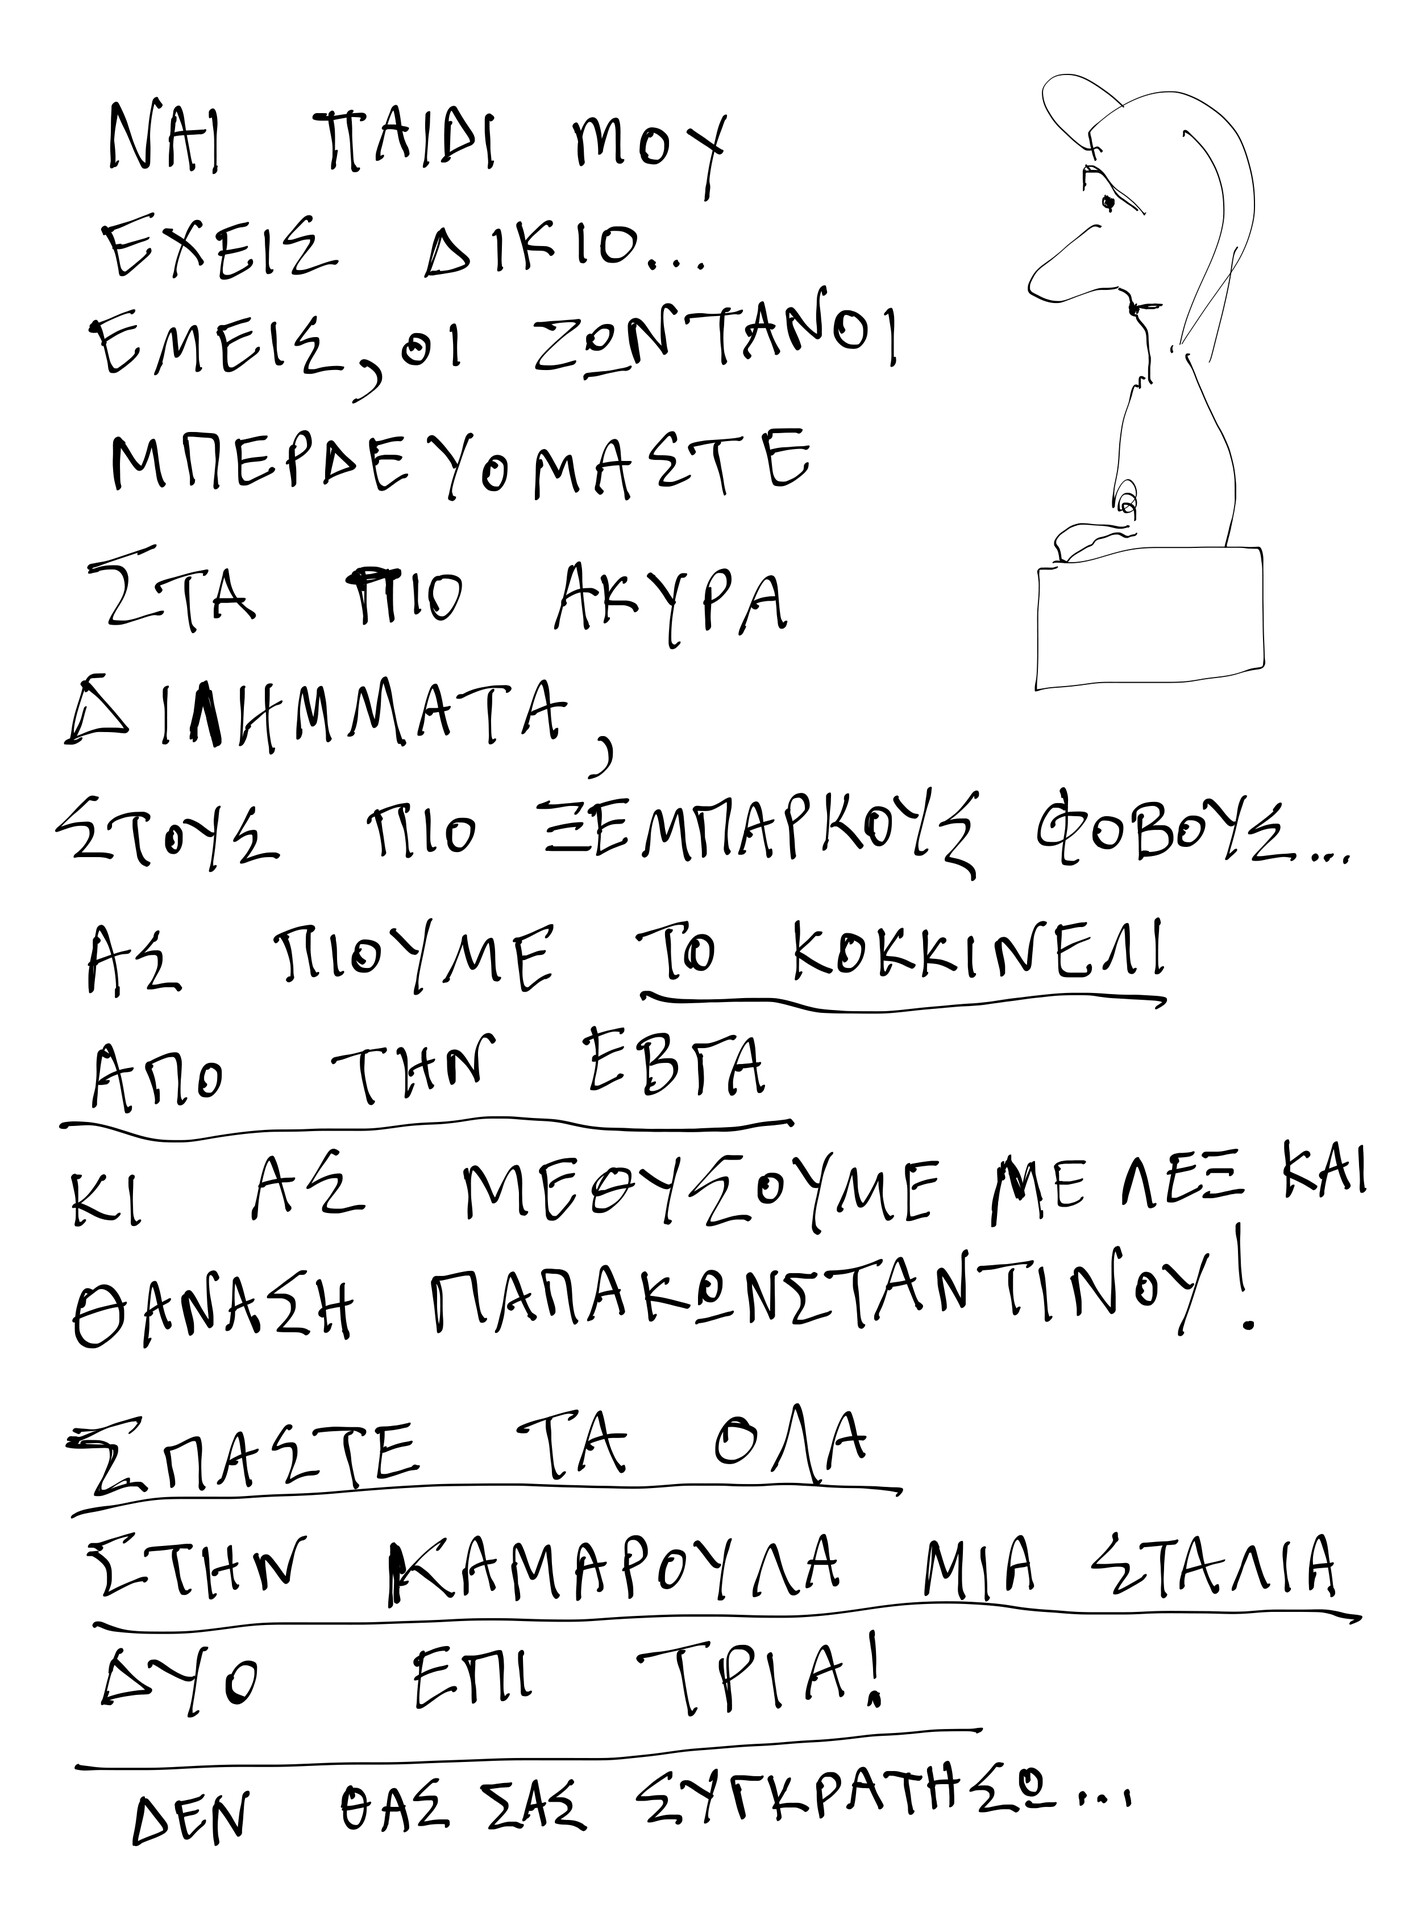 ΝΑΙ ΠΑΙΔΙ ΜΟΥ
ΕΧΕΙΣ ΔΙΚΙΟ...
ΕΜΕΙΣ, ΟΙ ΖΩΝΤΑΝΟΙ
ΜΠΕΡΔΕΥΟΜΑΣΤΕ
ΣΤΑ ΠΙΟ ΑΚΥΡΑ
ΔΙΛΗΜΜΑΤΑ,
ΣΤΟΥΣ ΠΙΟ ΞΕΜΠΑΡΚΟΥΣ ΦΟΒΟΥΣ...
ΑΣ ΠΙΟΥΜΕ ΤΟ ΚΟΚΚΙΝΕΛΙ
ΑΠΟ ΤΗΝ ΕΒΓΑ
ΚΙ ΑΣ ΜΕΘΥΣΟΥΜΕ ΜΕ ΛΕΞ ΚΑΙ
ΘΑΝΑΣΗ ΠΑΠΑΚΩΝΣΤΑΝΤΙΝΟΥ!
ΣΠΑΣΤΕ ΤΑ ΟΛΑ
ΣΤΗΝ ΚΑΜΑΡΟΥΛΑ ΜΙΑ ΣΤΑΛΙΑ
ΔΥΟ ΕΠΙ ΤΡΙΑ!
ΔΕΝ ΘΑΣ ΣΑΣ ΣΥΓΚΡΑΤΗΣΩ...